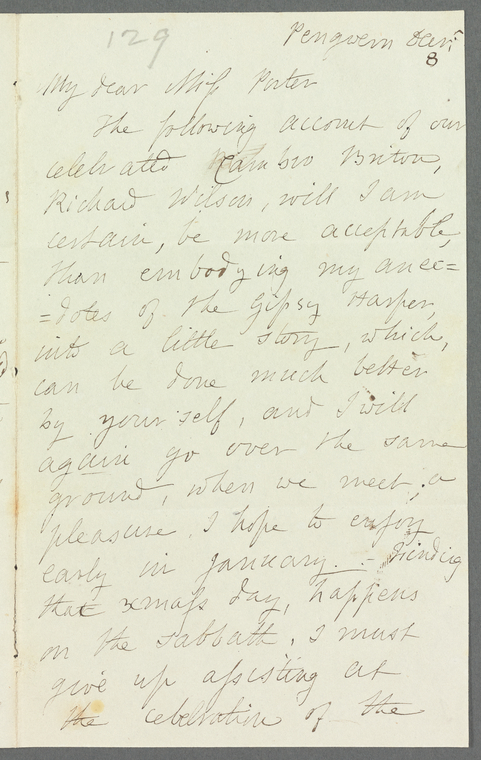 129
Pengwern Decr
8
My dear Miss Porter
The following account of our
celebrated Cambro Briton,
Richard Wilson, will I am
certain, be more acceptable,
than embodying my anec=
=dotes of the Gipsy Harper,
into a little story, which,
can be done much better
by yourself, and I will
again go over the same
ground, when we meet; a
pleasure I hope to enjoy
early in January. – Finding
that xmass day, happens
on the sabbath, I must
give up assisting at
the celebration of the